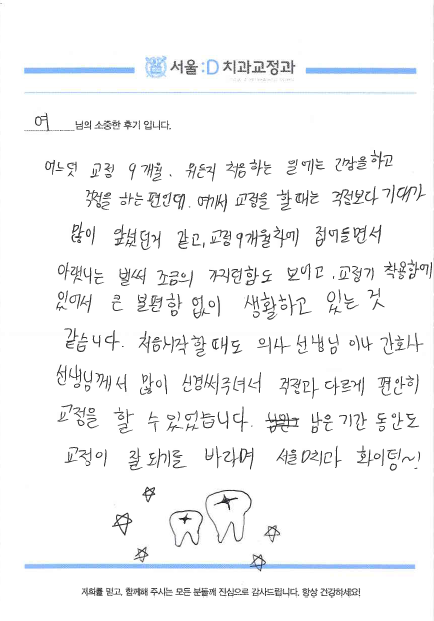 서울:D 치과교정과
여 님의 소중한 후기 입니다.
어느덧 교정 9개월. 뭐든지 처음하는 일에는 긴장을하고
걱정을 하는편인데. 여기서 교정을 할때는 걱정보다 기대가
많이 앞섰던거 같고, 교정9개월차에 접어들면서
아랫니는 벌써 조금의 가지런함도 보이고, 교정기 착용함에
있어서 큰 불편함 없이 생활하고 있는 것
같습니다. 처음시작할때도 의사 선생님 이나 간호사
선생님께서 많이 신경써주셔서 걱정과 다르게 편안히
교정을 할 수 있었습니다. 남은기간 동안도
교정이 잘되기를 바라며 서울D치과 화이팅~!
저희를 믿고, 함께해 주시는 모든 분들께 진심으로 감사드립니다. 항상 건강하세요!